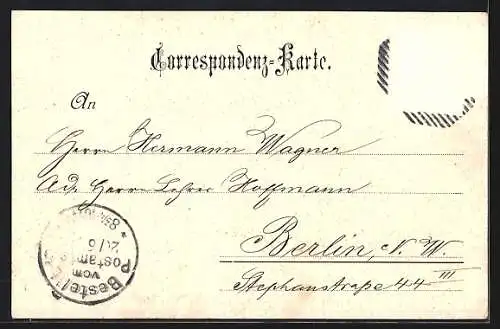 Correspondenz-Karte.
An
Herrn Hermann Wagner
Ad. Herrn Lehrer Hoffmann
Berlin, N. W.
Stephanstraße 44 III
Bestellt
vom
Postamte
2/6